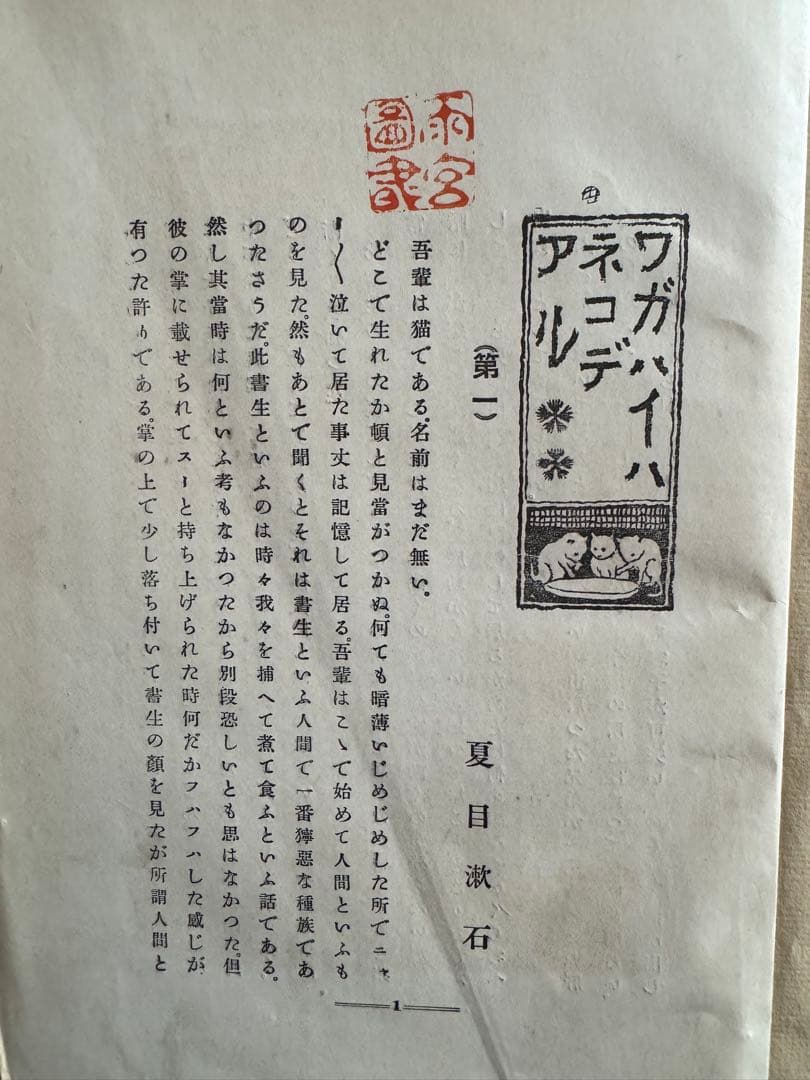 雨宮
圖書
ワガハイハ
ネコデ
アル
(第一)
夏目漱石
吾輩は猫である。名前はまだ無い。
どこで生れたか頓と見當がつかぬ。何ても暗薄いじめじめした所でニャ
ー〳〵泣いて居た事丈は記憶して居る。吾輩はこゝで始めて人間といふも
のを見た。然もあとで聞くとそれは書生といふ人間で一番獰惡な種族であ
つたさうだ。此書生といふのは時々我々を捕へて煮て食ふといふ話である。
然し其當時は何といふ考もなかつたから別段恐しいとも思はなかつた。但
彼の掌に載せられてスーと持ち上げられた時何だかフハフハした感じが
有つた許りである。掌の上で少し落ち付いて書生の顔を見たが所謂人間と
1